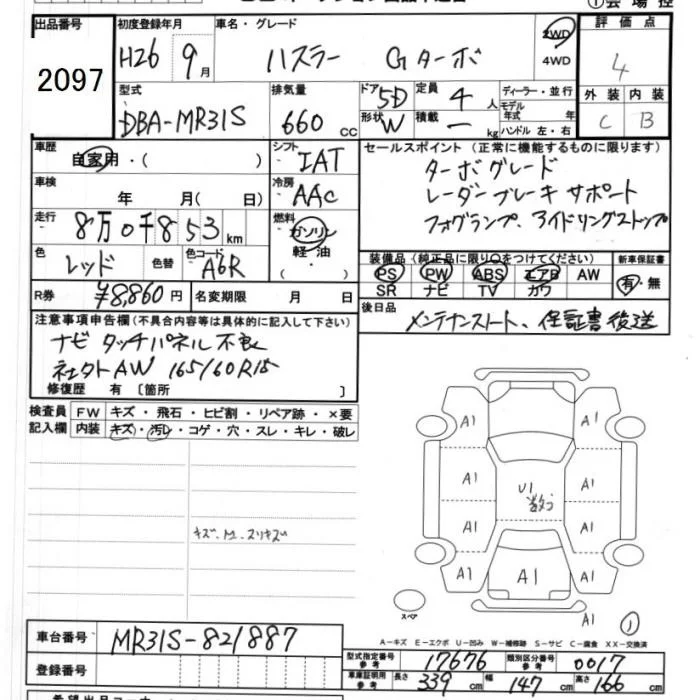 出品番号 初度登録年月 車名・グレード 評価点
2097 H26 9月 ハスラー Gターボ 2WD 4WD 4
型式 排気量 ドア 定員 ディーラー・並行 外装 内装
DBA-MR31S 660 cc 5D 4 人 モデル年式 年 C B
形状 W 積載 ー kg ハンドル 左・右
車歴 自家用・( ) シフト IAT セールスポイント (正常に機能するものに限ります)
車検 年 月( 日) 冷房 AAC ターボグレード
レーダーブレーキサポート
走行 8万0千853km 燃料 ガソリン 軽油 ・( ) フォグランプ、アイドリングストップ
色 レッド 色替 色コード A6R 装備品 (純正品に限り○をつけてください) 新車保証書
PS PW ABS エアB AW 有・無
R券 ¥8,860円 名変期限 月 日 SR ナビ TV カワ
注意事項申告欄 (不具合内容等は具体的に記入して下さい) 後日品 メンテナンスノート、保証書後送
ナビ タッチパネル不良
社外AW 165/60R15
修復歴 有 〔箇所 〕
検査員 FW キズ・飛石・ヒビ割・リペア跡・×要
記入欄 内装 キズ・汚レ・コゲ・穴・スレ・キレ・破レ
A1 A1
A1 U1 A1
数ヶ
キズ・スリキズ
A1 A1
A1 A1 A1
スペア A1 1
A-キズ E-エクボ U-凹み W-補修跡 S-サビ C-腐食 XX-交換済
車台番号 MR31S-821887
型式指定番号 参考 17676 類別区分番号 参考 0017
登録番号 車庫証明用 参考 長さ 339 cm 幅 147 cm 高さ 166 cm